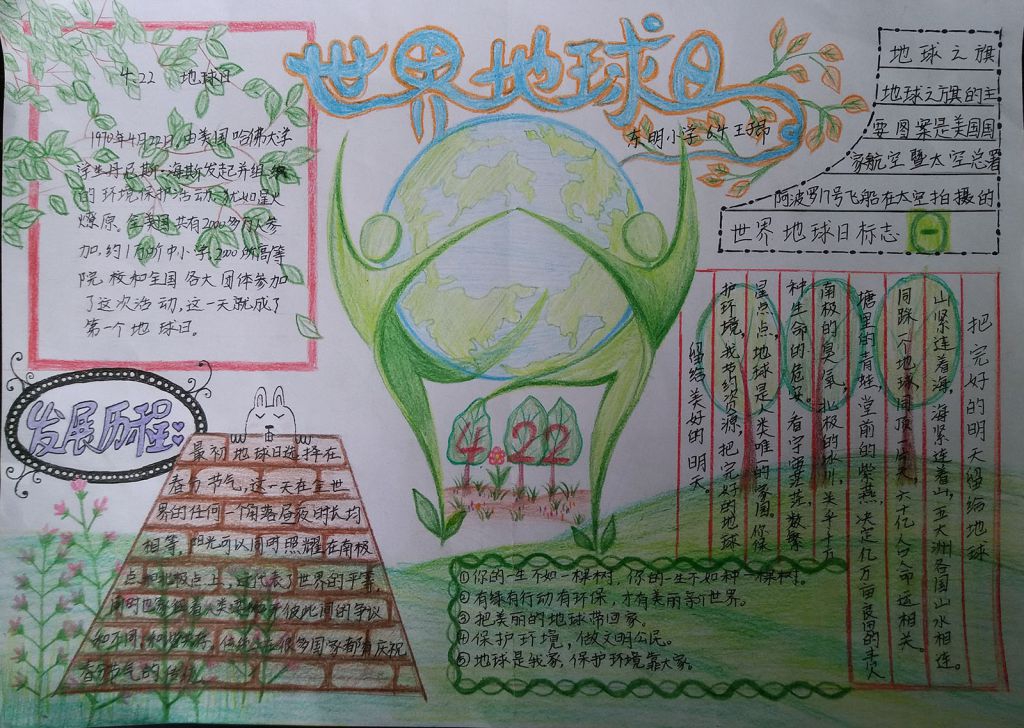 世界地球日
东明小学
4.22 地球日
1970年4月22日,由美国哈佛大学
学生丹尼斯·海斯发起并组织
的环境保护活动,犹如星火
燎原。全美国共有2000多万人参
加,约1万所中小学,2000所高等
院校和全国各大团体参加
了这次活动,这一天就成了
第一个地球日。
地球之旗
地球之旗的主
要图案是美国国
家航空暨太空总署
阿波罗17号飞船在太空拍摄的
世界地球日标志
发展历程
最初地球日选择在
春分节气,这一天在全世
界的任何一个角落昼夜的长均
相等,阳光可以同时照耀在南极
点和北极点上,这代表了世界的平等,
同时也象征着人类要抛开彼此间的争议
和不同,和谐共存。传统上在很多国家都有庆祝
春分节气的传统
4 22
把完好的明天留给地球
山紧连着海,海紧连着山,五大洲各国山水相连。
同踩一个地球,同顶一片天,六十亿人口命运相关。
塘里的青蛙,堂前的紫燕,决定亿万亩良田的丰欠
南极的臭氧,北极的冰川,关乎千万
种生命的危安。看宇宙茫茫,数繁
星点点,地球是人类唯一的家园。你保
护环境,我节约资源,把完好的地球
留给美好的明天。
①你的一生不如一棵树,你的一生不如种一棵树。
②有绿有行动有环保,才有美丽等个世界。
③把美丽的地球带回家。
④保护环境,做文明公民。
⑤地球是我家,保护环境靠大家。